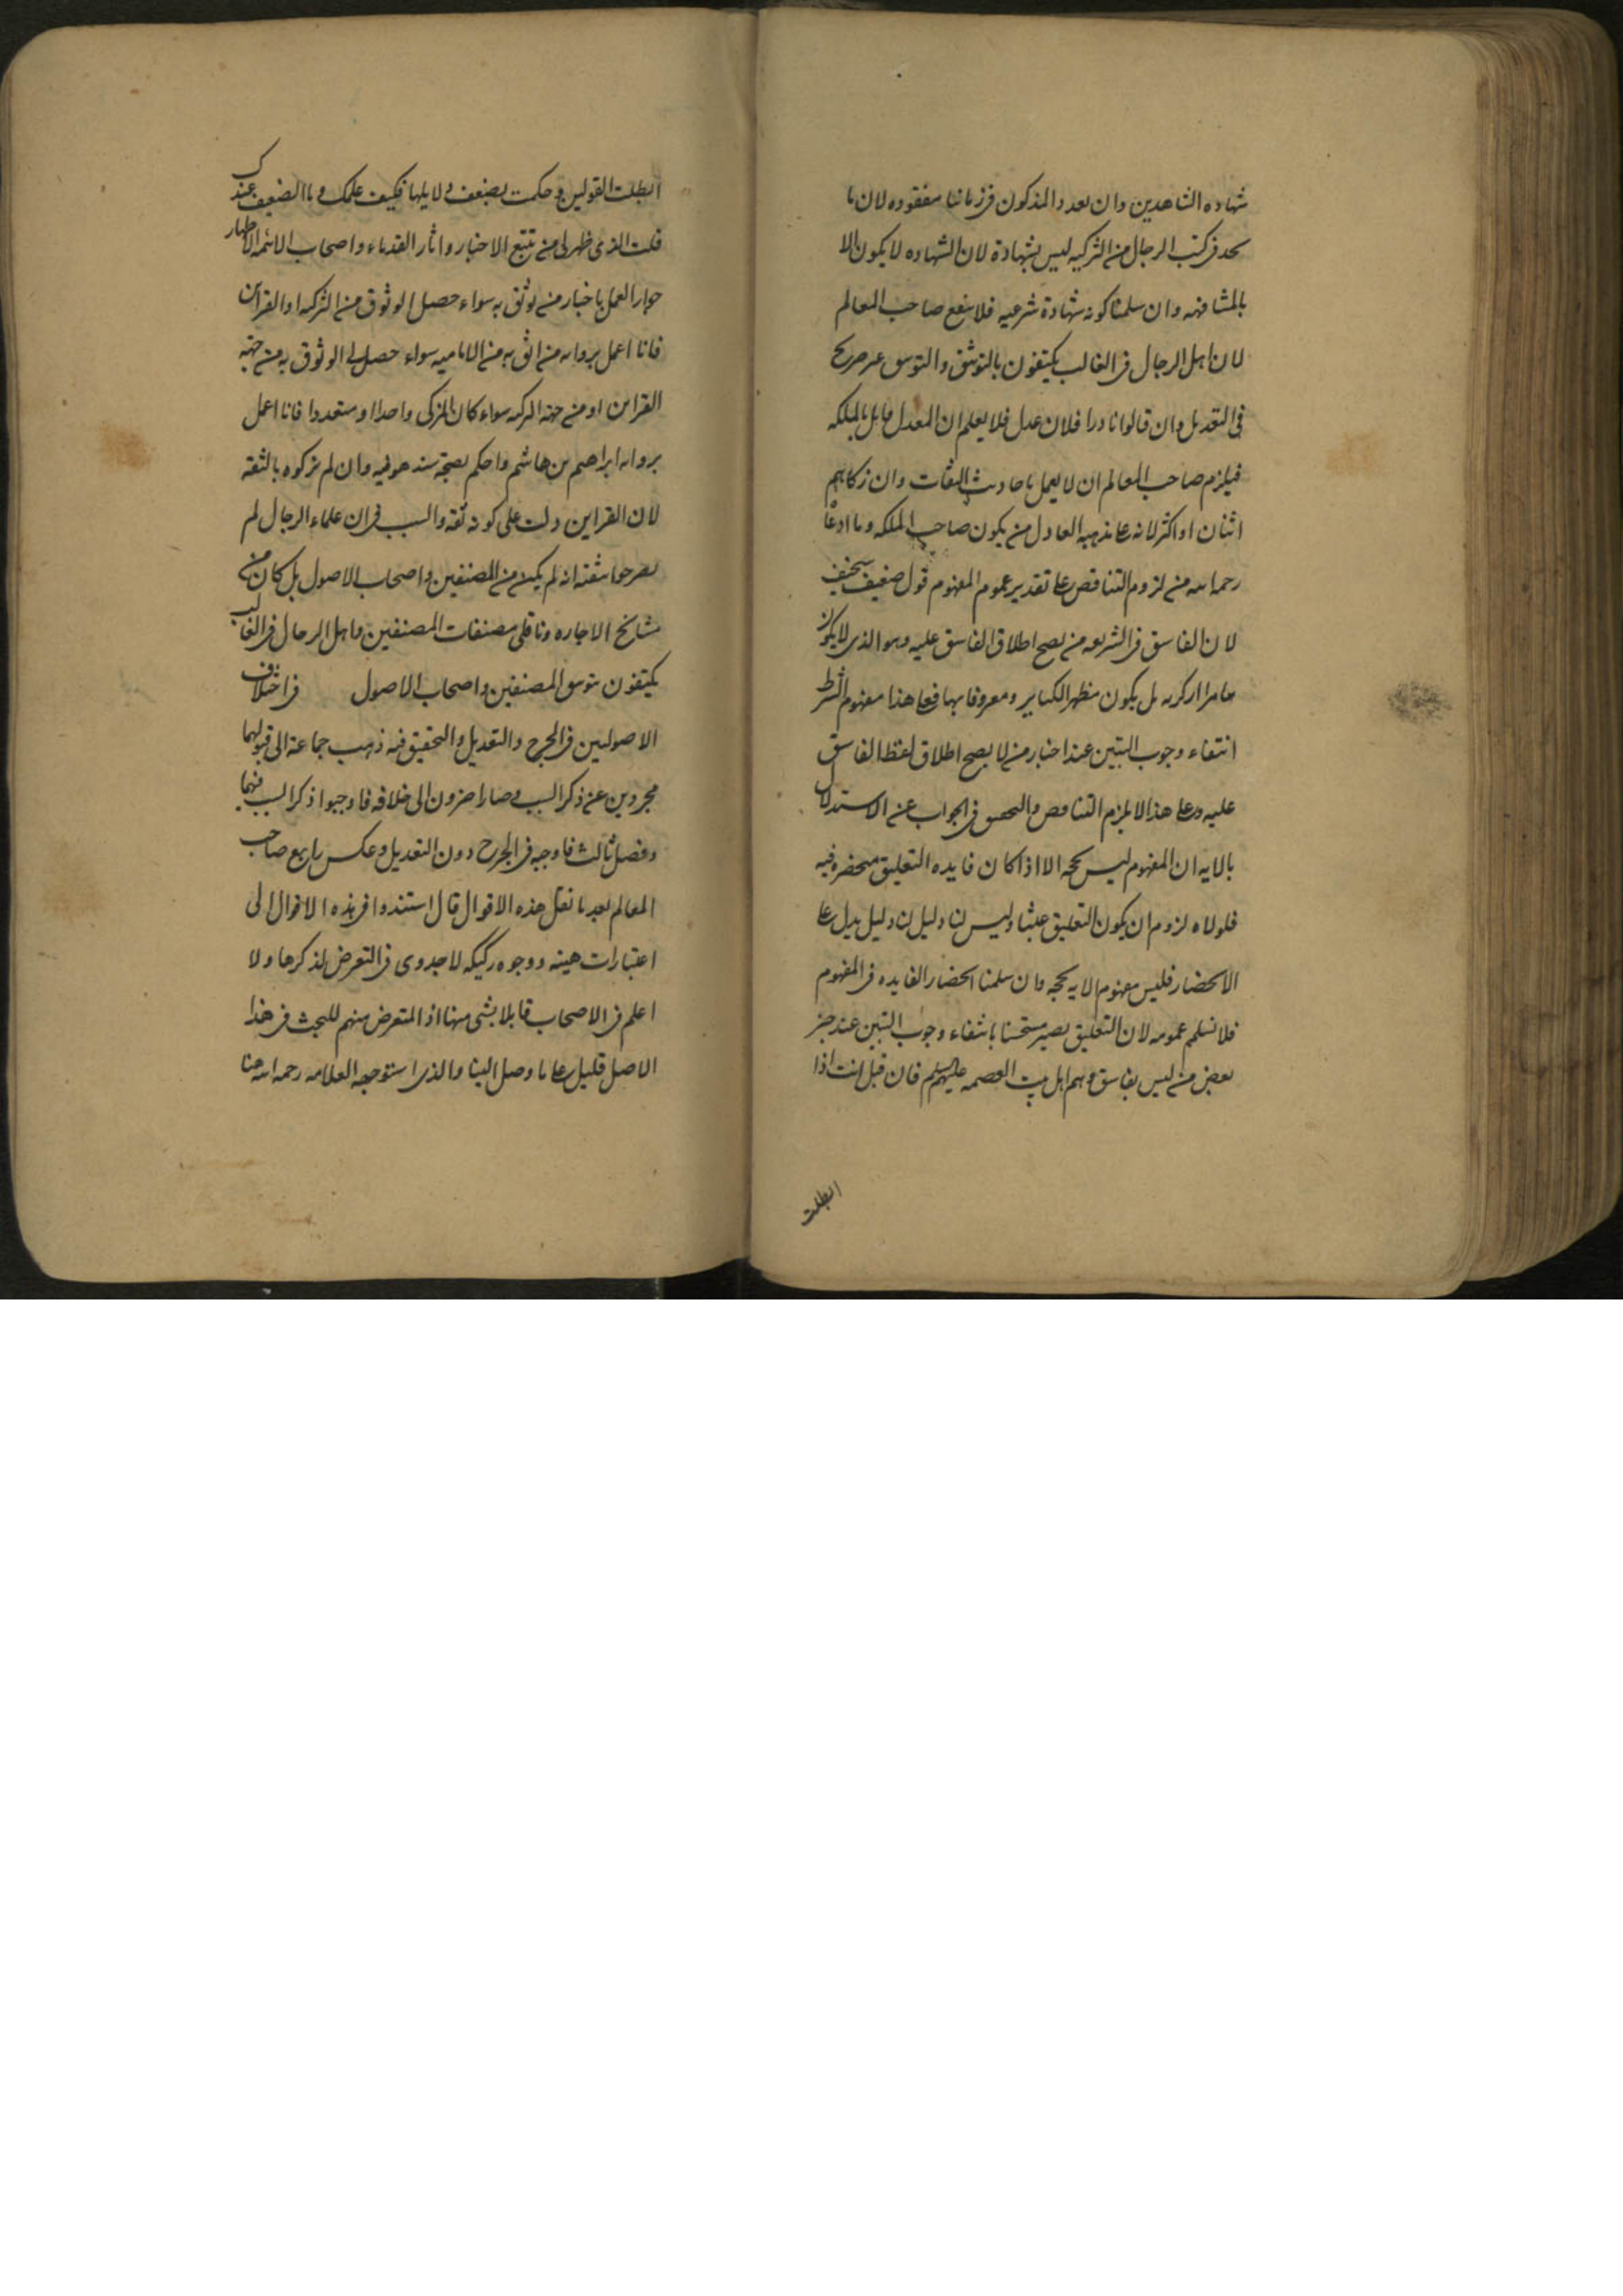 شهاده الشاهدين وان تعدد المذكون فى زماننا مفقوده لان ما
نجد فى كتب الرجال من التزكيه ليس بشهادة لان الشهاده لا يكون الا
بالمشافهه وان سلمنا كونه شهادة شرعيه فلا ينفع صاحب المعالم
لان اهل الرجال فى الغالب يكتفون بالتوثيق والتوثيق غير صريح
فى التعديل وان قالوا نادرا فلان عدل فلا يعلم ان المعدل قايل بالملكه
فيلزم صاحب المعالم ان لا يعمل باحاديث الثقات وان زكاهم
اثنان او اكثر لانه على مذهبه العادل من يكون صاحب الملكه وما ادعا
رحمه الله من لزوم التناقض على تقدير عموم المفهوم قول ضعيف سخيف
لان الفاسق فى الشريعه من يصح اطلاق الفاسق عليه وهو الذى لا يكون
بل يكون مظهر الكباير ومعروفا بها فعلى هذا مفهوم الشرط
انتفاء وجوب التبين عند اخبار من لا يصح اطلاق لفظ الفاسق
عليه وعلى هذا لا يلزم التناقض والتحقيق فى الجواب عن الاستدلال
بالايه ان المفهوم ليس بحجه الا اذا كان فايده التعليق منحصره فيه
فلولاه لزوم ان يكون التعليق عبثا وليس لنا دليل لنا دليل يدل على
الانحصار فليس مفهوم الايه بحجه وان سلمنا انحصار الفايده فى المفهوم
فلا نسلم عمومه لان التعليق يصير مستحسنا بانتفاء وجوب التبين عند خبر
بعض من ليس بفاسق وهم اهل بيت العصمه عليهم السلم فان قيل انت اذا
ابطلت
ابطلت القولين وحكمت بضعف دلايلها فكيف عملك وما الضعيف عندك
قلت الذى ظهر لى من تتبع الاخبار واثار القدماء واصحاب الائمه الاطهار
جواز العمل باخبار من يوثق به سواء حصل الوثوق من التزكيه او القراين
فانا اعمل بروايه من اثق به من الاماميه سواء حصل لى الوثوق به من جهه
القراين او من جهه التزكيه سواء كان المزكى واحدا او متعددا فانا اعمل
بروايه ابراهيم بن هاشم واحكم بصحة سند هو فيه وان لم يزكوه بالثقه
لان القراين دلت على كونه ثقه والسبب فى ان علماء الرجال لم
يصرحوا بثقته انه لم يكن من المصنفين واصحاب الاصول بل كان من
مشايخ الاجازه وناقلى مصنفات المصنفين واهل الرجال فى الغالب
يكتفون بتوثيق المصنفين واصحاب الاصول فى اختلاف
الاصوليين فى الجرح والتعديل والتحقيق فيه ذهب جماعة الى قبولهما
مجردين عن ذكر السبب وصار اخرون الى خلافه فاوجبوا ذكر السبب فيهما
وفصل ثالث فاوجبه فى الجرح دون التعديل وعكس رابع صاحب
المعالم بعد ما نقل هذه الاقوال قال استندوا فى هذه الاقوال الى
اعتبارات هينه ووجوه ركيكه لا جدوى فى التعرض لذكرها ولا
اعلم فى الاصحاب قايلا بشى منها اذ المتعرض منهم للبحث فى هذا
الاصل قليل على ما وصل الينا والذى استوجهه العلامه رحمه الله هنا